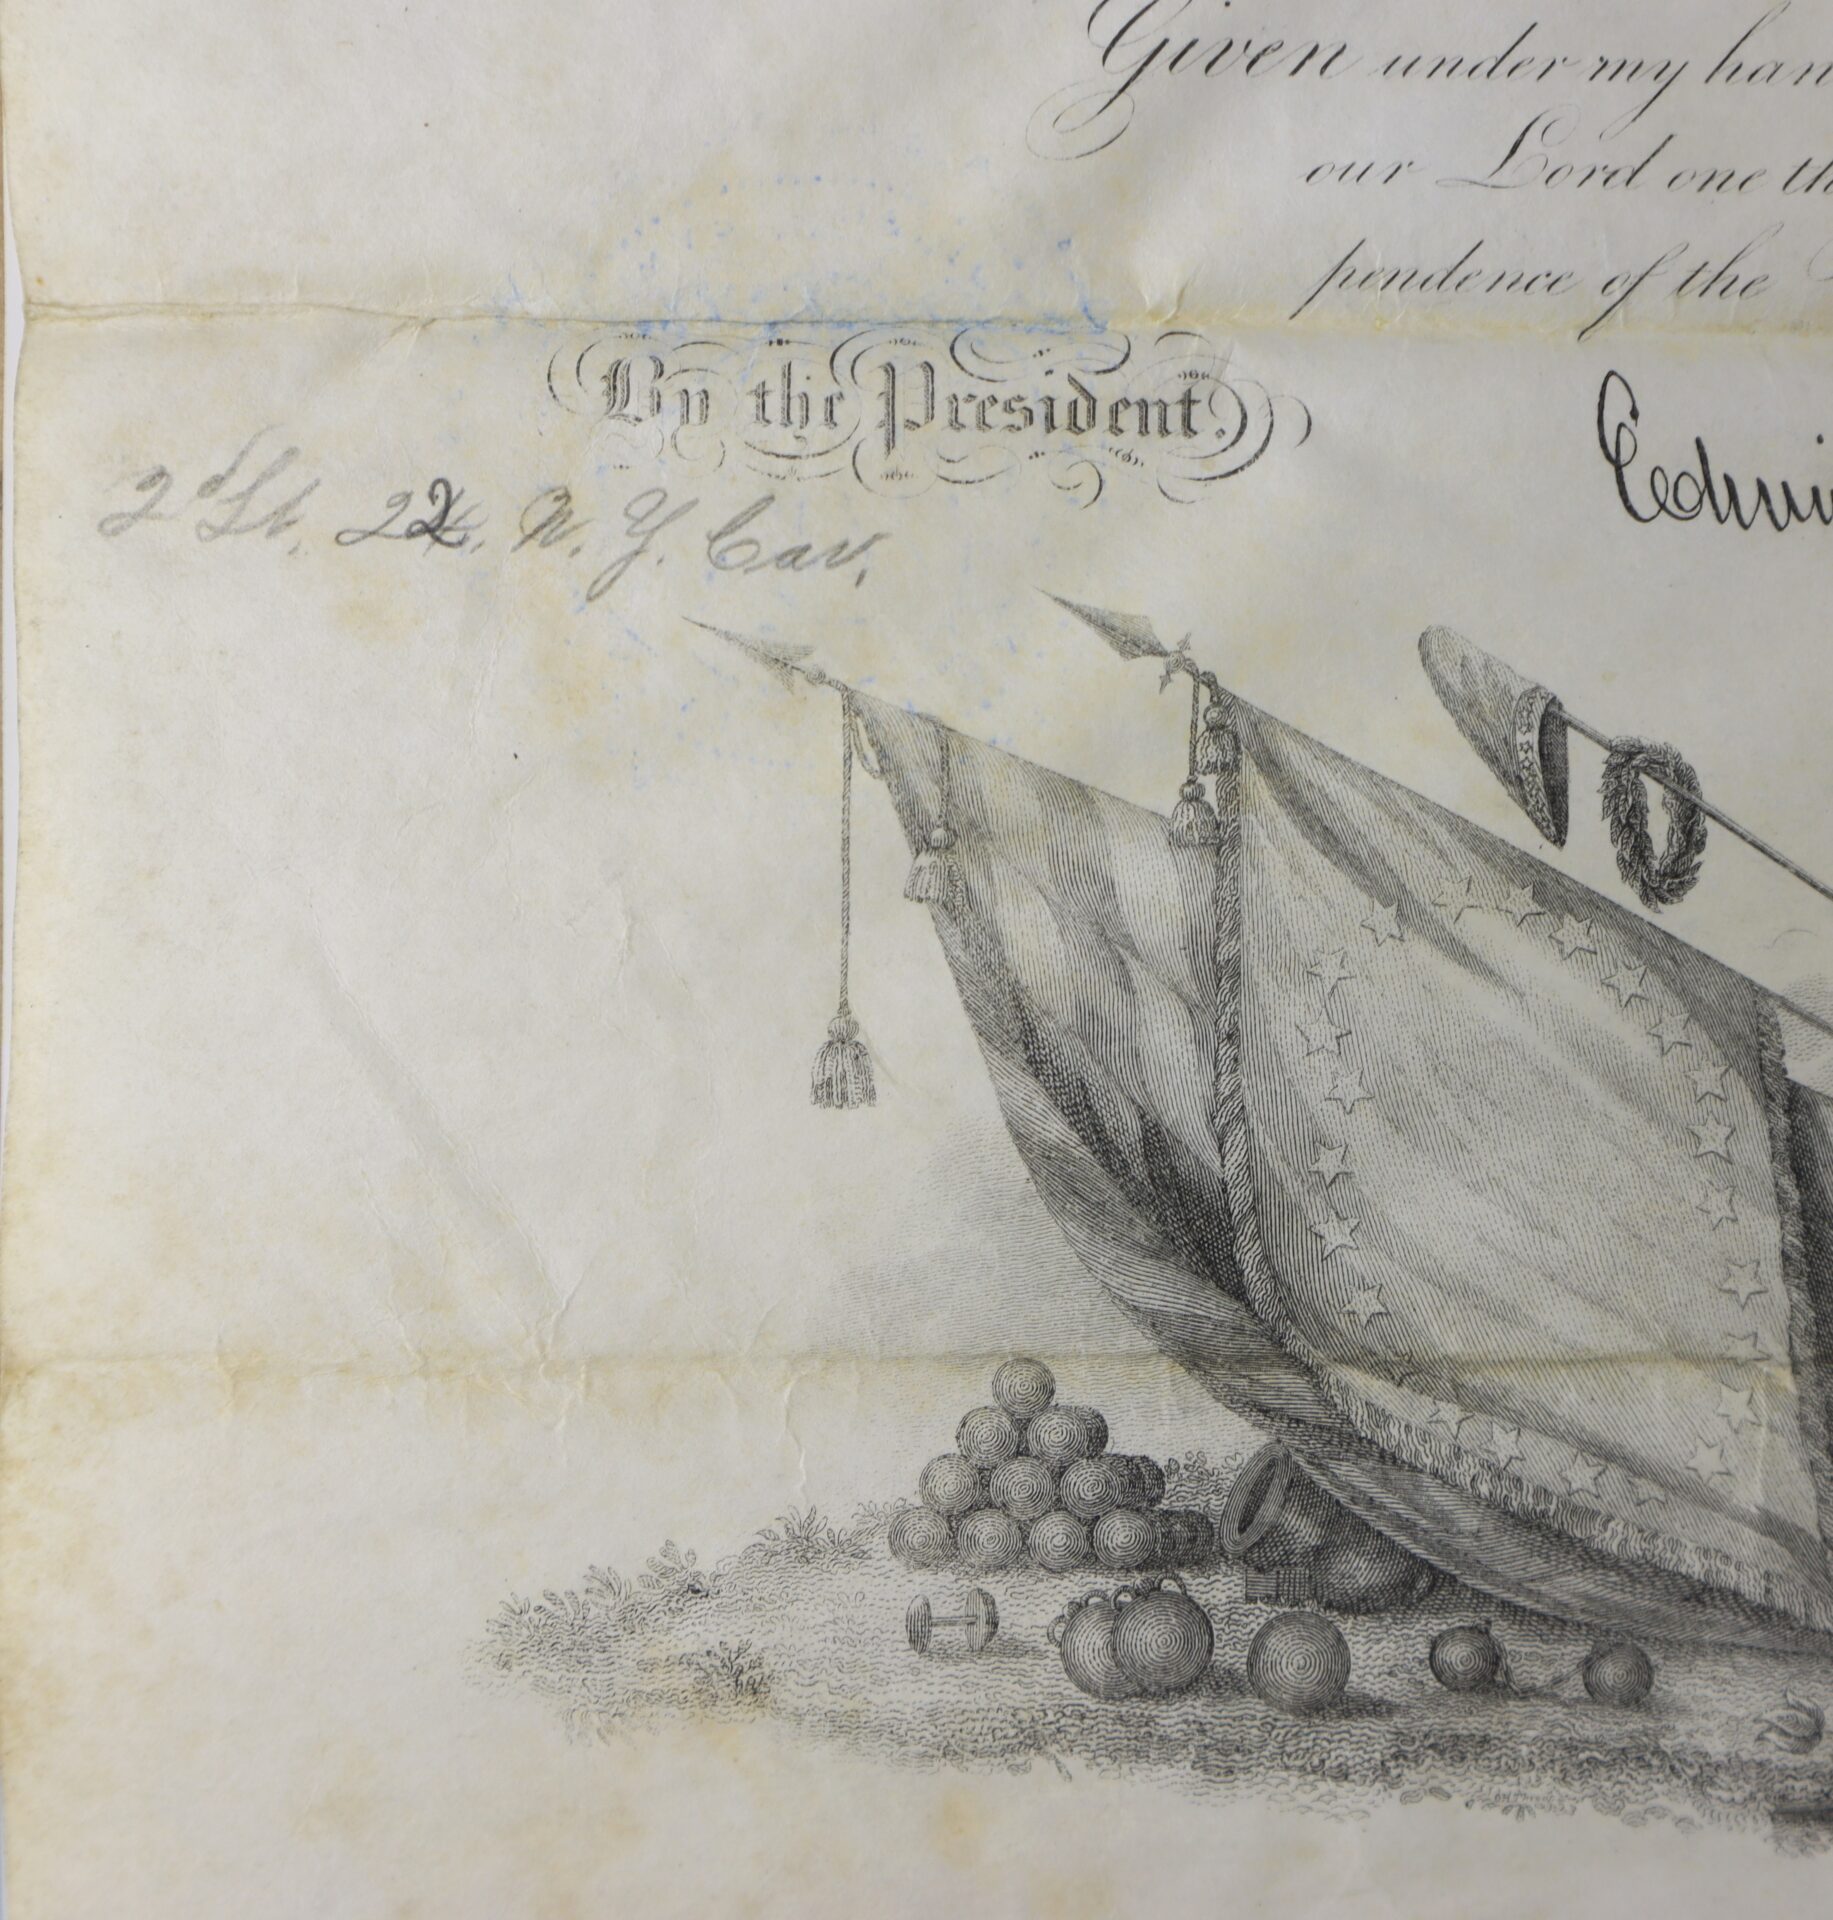 Given under my han
our Lord one th
pendence of the
By the President.
Edwi
2d Lt. 22. N. Y. Cav.